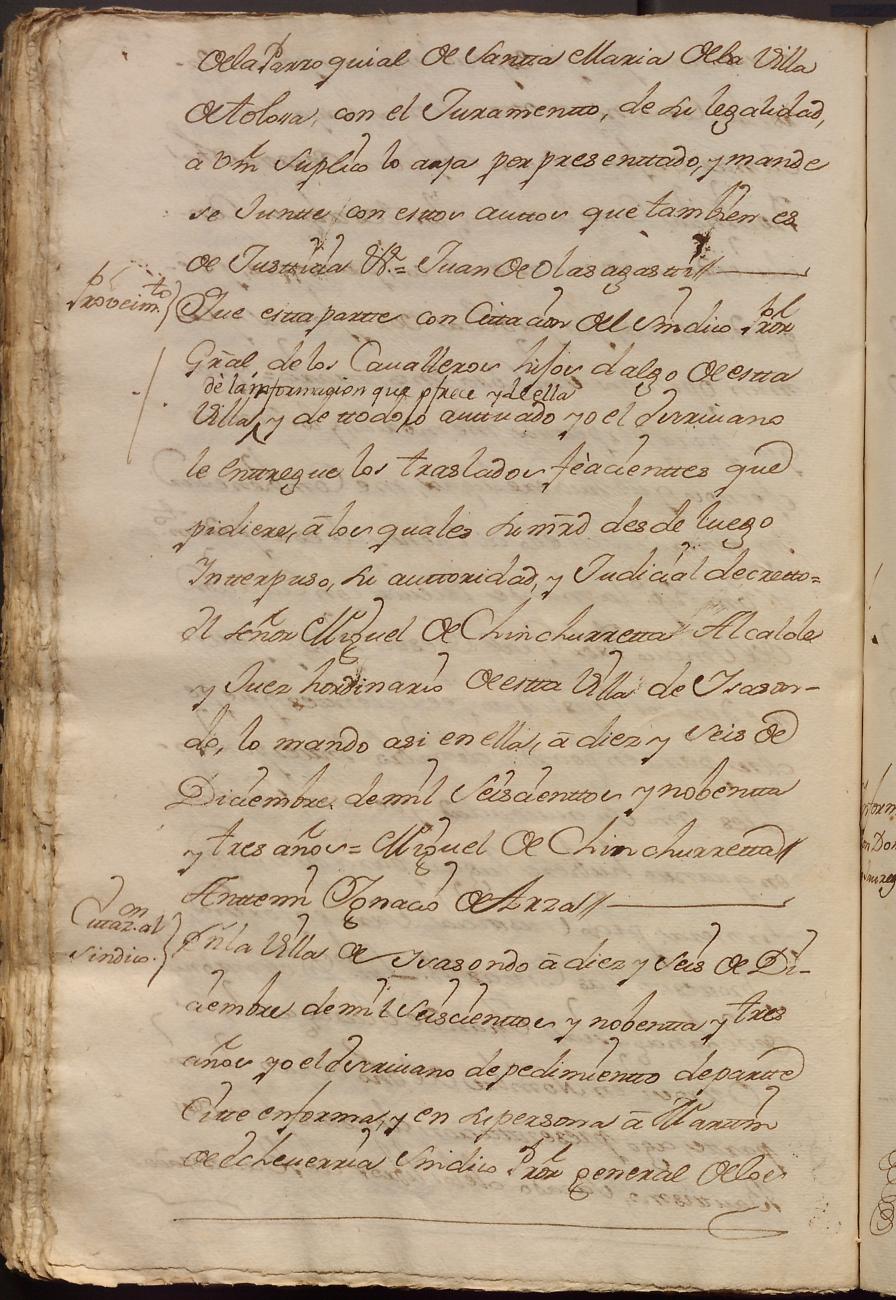 de la Parroquial de Santta Maria de la Villa
de tolosa, con el Juramentto, de su legalidad,
a Vm Suplico lo aya por presenttado, y mande
se Juntte con esttos auttos que tambien es
de Justticia &ª.= Juan de Olasagastti//
Proveimto
Que estta partte con Cittacion del Sindico Pror
Gral de los Cavalleros hijos dalgo de estta
de la informazion que ofrece y de ella
Villa, y de ttodo lo auttuado yo el escrivano
le enttregue los traslados feacienttes que
pidiere, a los quales su mrd desde luego
Intterpuso, su auttoridad, y Judicial decretto=
el señor Miguel de Chinchurretta Alcalde
y Juez hordinario de estta Villa de Isason-
do, lo mando asi en ella, a diez y seis de
Diciembre de mil Seiscienttos y nobentta
y tres años= Miguel de Chinchurretta//
Antte mi Ignacio de Arza//
Cittazon al
Sindico.
En la Villa de Ysasondo a diez y seis de Di-
ciembre de mil Seiscienttos y nobentta y tres
años yo el escrivano de pedimientto de partte
Citte en forma, y en su persona a Marttin
de Echeverria Sindico Pror general de los